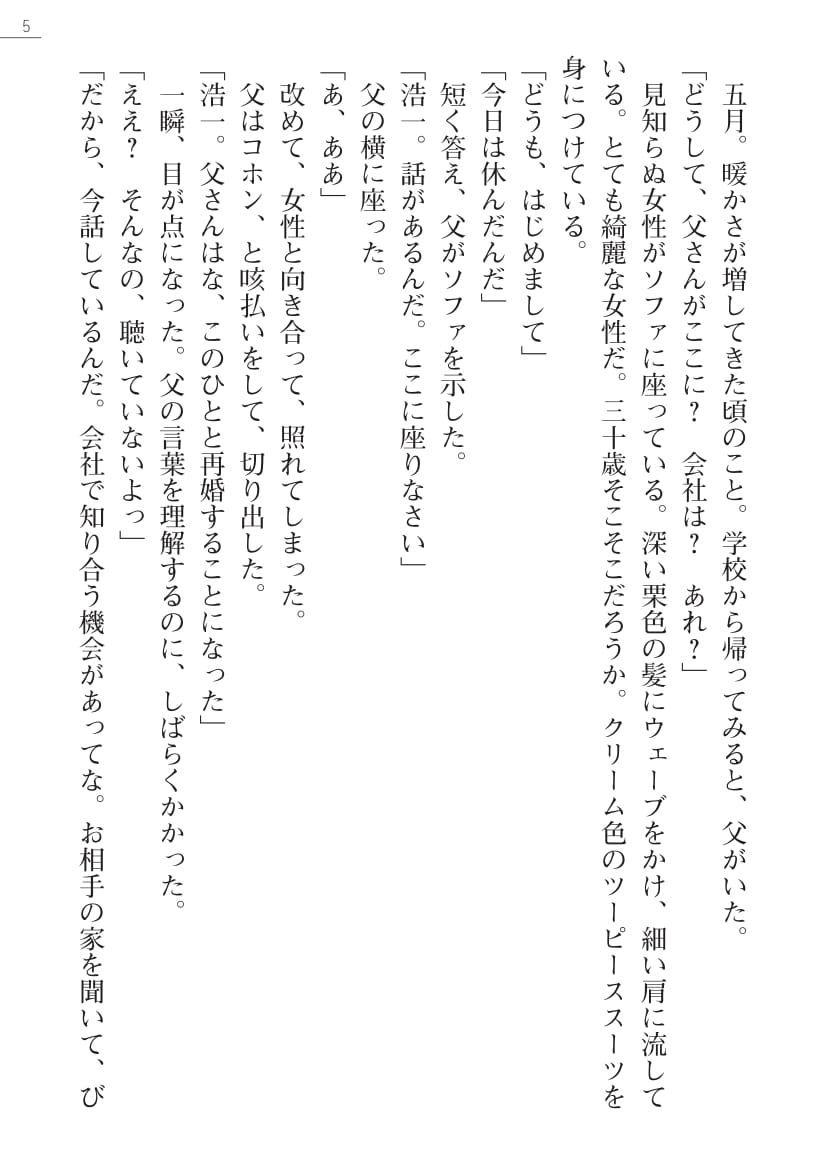 5
　五月。暖かさが増してきた頃のこと。学校から帰ってみると、父がいた。
「どうして、父さんがここに？　会社は？　あれ？」
　見知らぬ女性がソファに座っている。深い栗色の髪にウェーブをかけ、細い肩に流して
いる。とても綺麗な女性だ。三十歳そこそこだろうか。クリーム色のツーピーススーツを
身につけている。
「どうも、はじめまして」
「今日は休んだんだ」
　短く答え、父がソファを示した。
「浩一。話があるんだ。ここに座りなさい」
　父の横に座った。
「あ、ああ」
　改めて、女性と向き合って、照れてしまった。
　父はコホン、と咳払いをして、切り出した。
「浩一。父さんはな、このひとと再婚することになった」
　一瞬、目が点になった。父の言葉を理解するのに、しばらくかかった。
「ええ？　そんなの、聴いていないよっ」
「だから、今話しているんだ。会社で知り合う機会があってな。お相手の家を聞いて、び